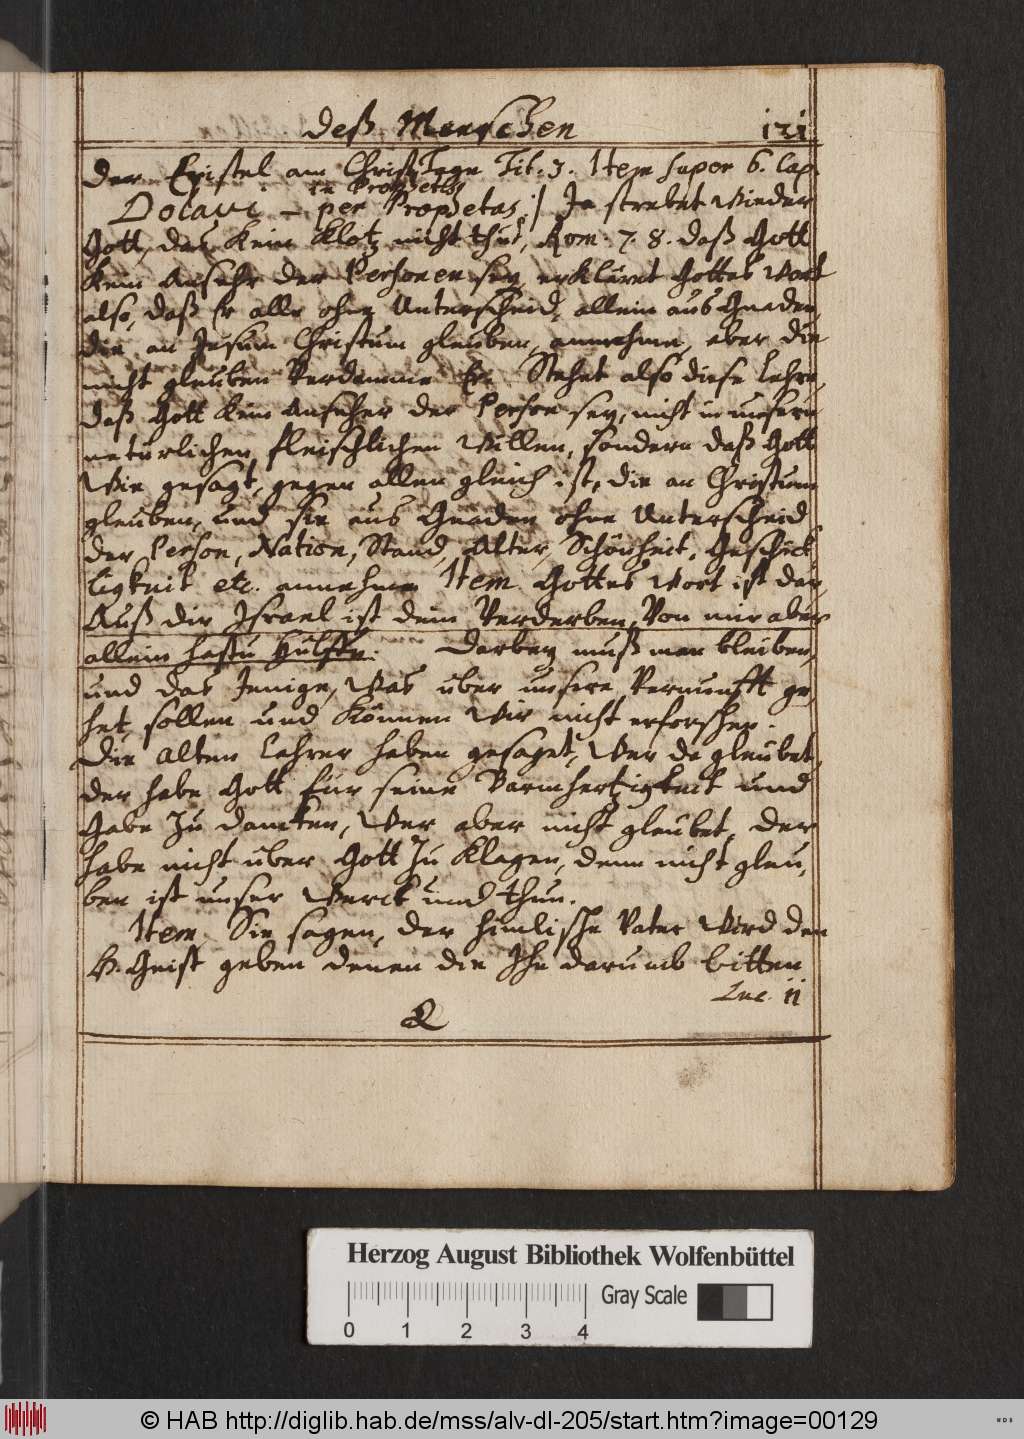 deß Menschen 121
der Epistel am ChristTage Tit. 3. Item super 6. Cap.
in Prophetis
Dolavi – per Prophetas :/ Ja strebet wieder
Gott, das kein Klotz nicht thut, Rom. 7. 8. daß Gott
kein Anseher der Personen sey, erkläret Gottes Wort
also, daß Er alle ohne Unterscheid, allein aus Gnaden,
die an Jesum Christum gleuben, annehme, aber die
nicht gleuben Verdamme Er. Stehet also diese Lehre,
daß Gott kein Anseher der Person sey, nicht in unserm
natürlichen, fleischlichen Willen, sondern daß Gott
Wie gesagt, gegen allen gleich ist, die an Christum
gleuben, und sie aus Gnaden ohne Unterscheid
der Person, Nation, Stand, Alter, Schönheit, Geschick
ligkeit etc. annehme. Item Gottes Wort ist der,
Auß dir Israel ist dein Verderben, Von mir aber
allein hastu Hülffe. Darbey muß man bleiben,
und das Jenige, Was über unsere Vernunfft ge,
het, sollen und können Wir nicht erforschen.
Die alten Lehrer haben gesaget, Wer da gleubet,
der habe Gott für seine Barmhertzigkeit und
Gabe zu dancken, Wer aber nicht gleubet, der
habe nicht über Gott zu klagen, denn nicht gleu,
ben ist unser Werck und thun.
Item Sie sagen, der himlische Vater Wird den
H. Geist geben denen die Ihn darumb bitten
Luc. 11
Q
Herzog August Bibliothek Wolfenbüttel
Gray Scale
0 1 2 3 4
© HAB http://diglib.hab.de/mss/alv-dl-205/start.htm?image=00129